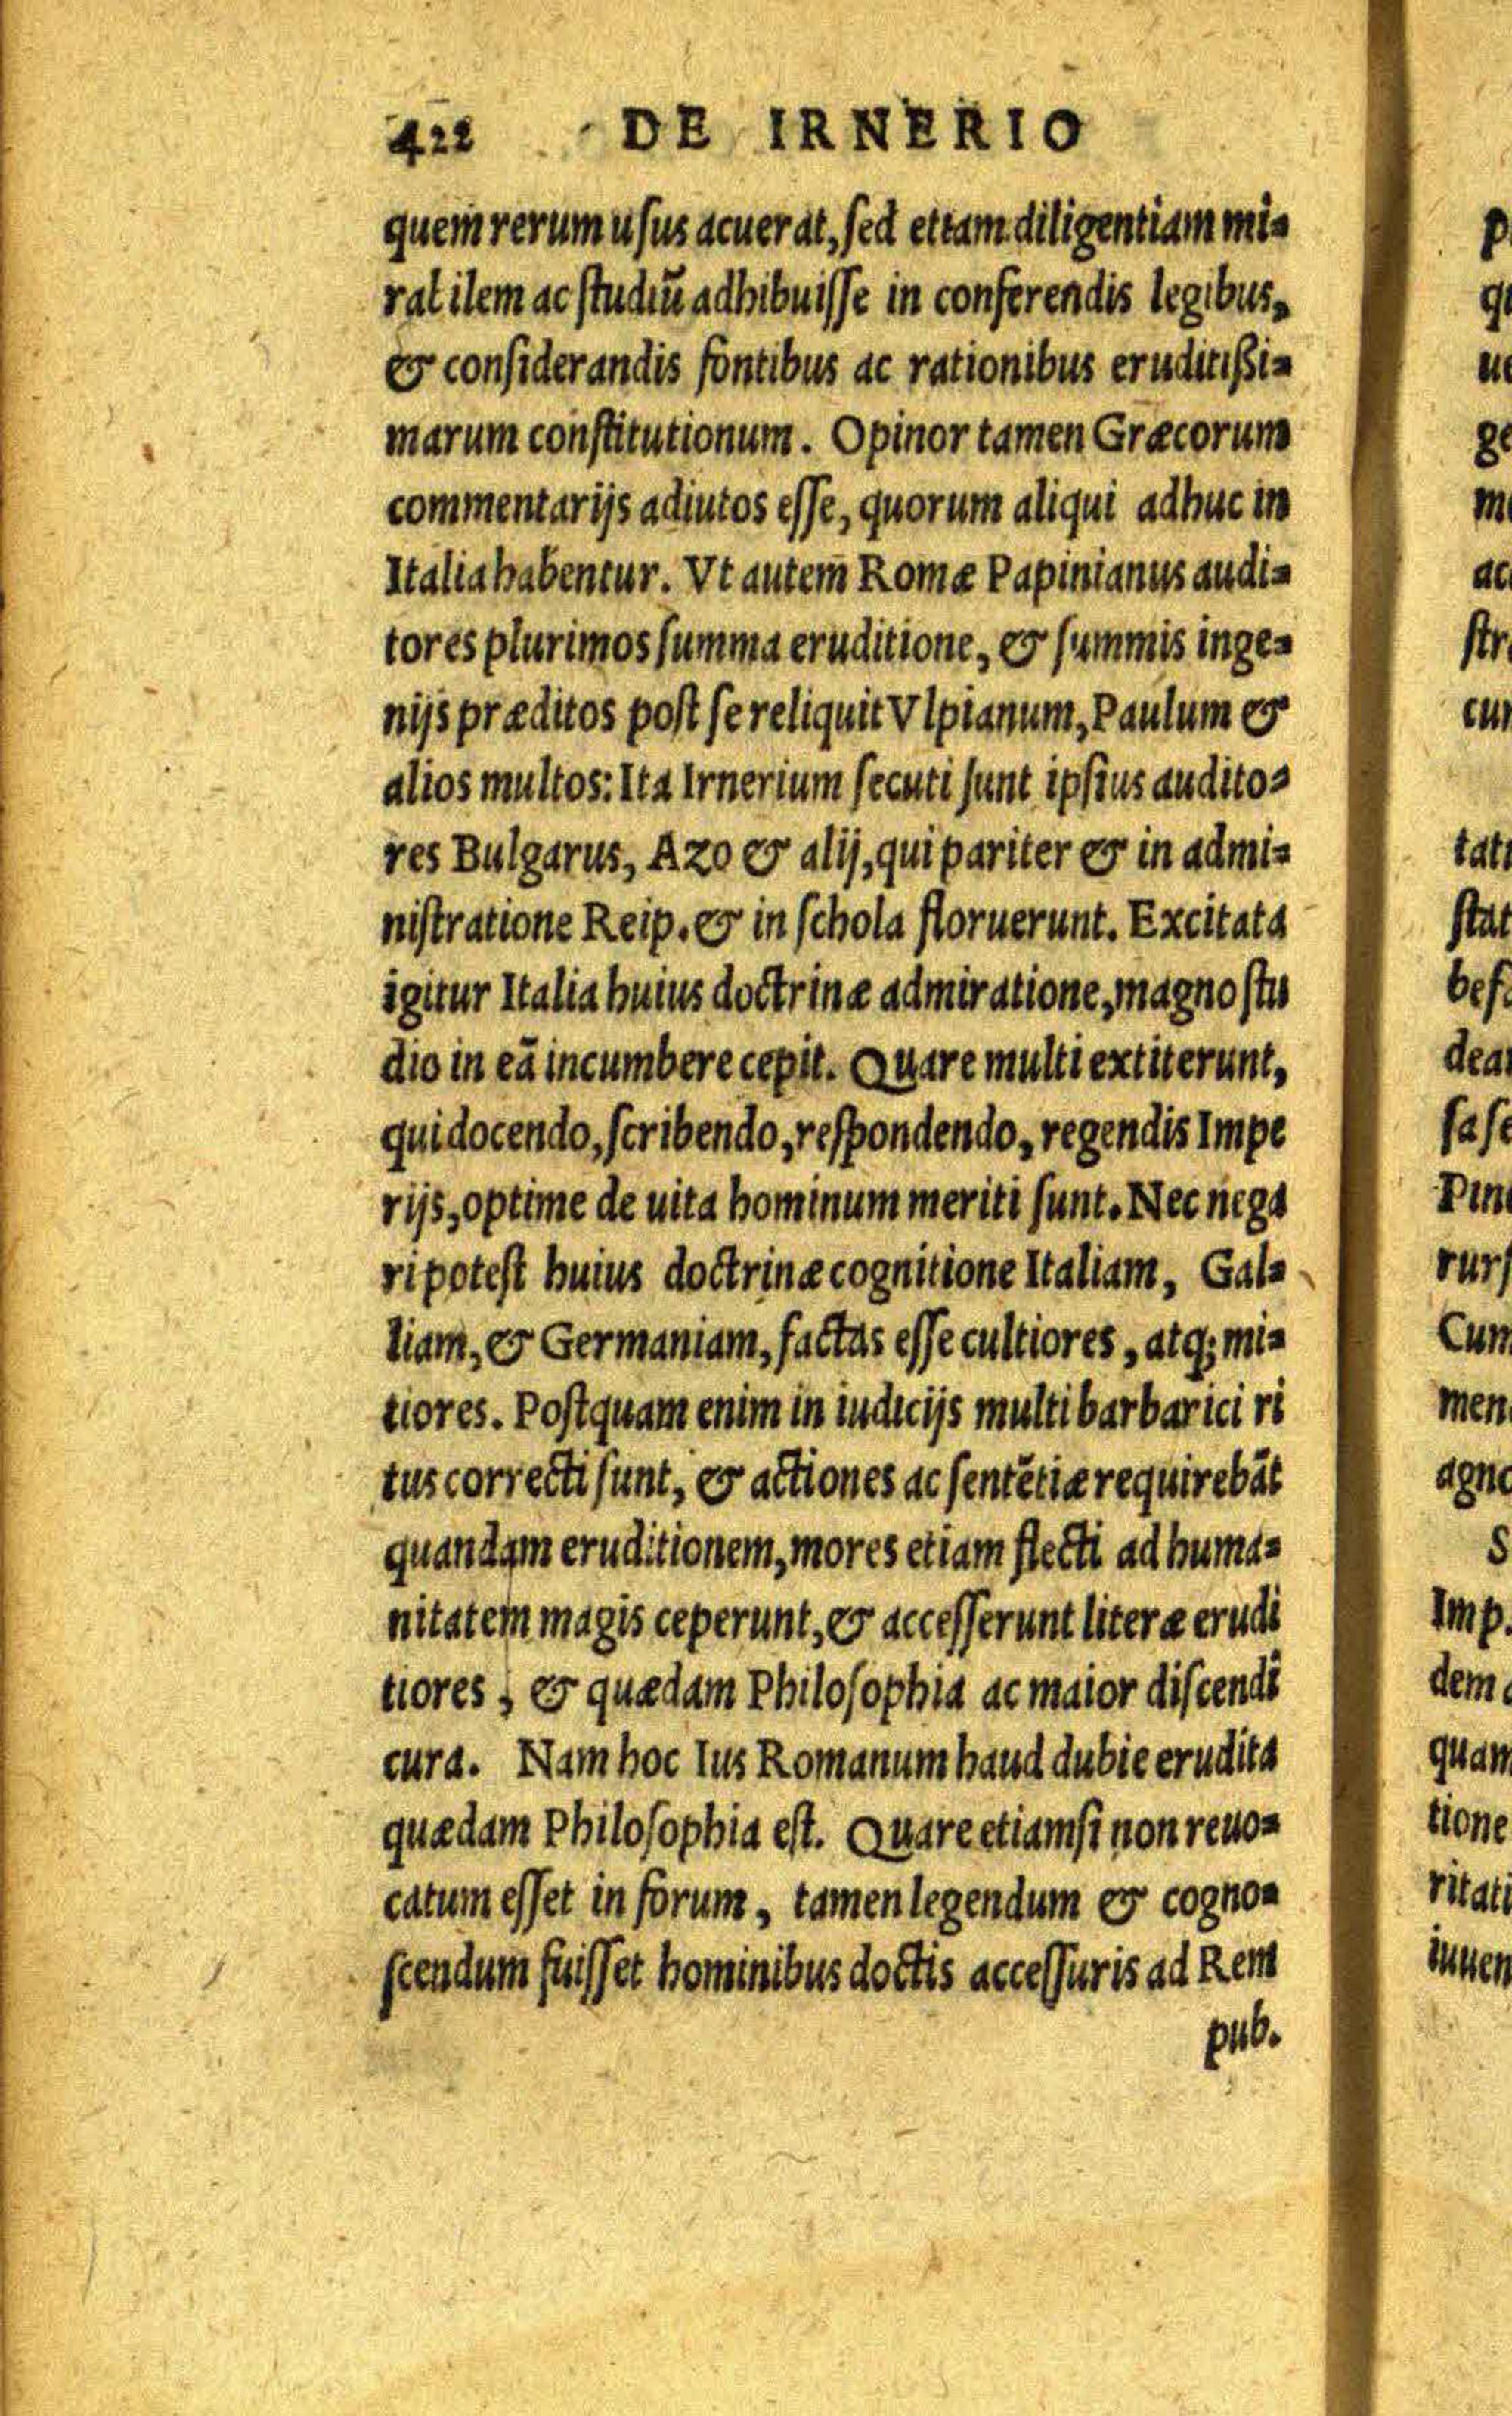 422 DE IRNERIO
quem rerum usus acuerat, sed etiam diligentiam mi-
rabilem ac studiũ adhibuisse in conferendis legibus,
& considerandis fontibus ac rationibus eruditißi-
marum constitutionum. Opinor tamen Græcorum
commentarijs adiutos esse, quorum aliqui adhuc in
Italia habentur. Vt autem Romæ Papinianus audi-
tores plurimos summa eruditione, & summis inge-
nijs præditos post se reliquit Vlpianum, Paulum &
alios multos: Ita Irnerium secuti sunt ipsius audito-
res Bulgarus, Azo & alij, qui pariter & in admi-
nistratione Reip. & in schola floruerunt. Excitata
igitur Italia huius doctrinæ admiratione, magno stu
dio in eã incumbere cepit. Quare multi extiterunt,
qui docendo, scribendo, respondendo, regendis Impe
rijs, optime de uita hominum meriti sunt. Nec nega
ri potest huius doctrinæ cognitione Italiam, Gal-
liam, & Germaniam, factas esse cultiores, atq; mi-
tiores. Postquam enim in iudicijs multi barbarici ri
tus correcti sunt, & actiones ac sentẽtiæ requirebãt
quandam eruditionem, mores etiam flecti ad huma-
nitatem magis ceperunt, & accesserunt literæ erudi
tiores, & quædam Philosophia ac maior discendi
cura. Nam hoc Ius Romanum haud dubie erudita
quædam Philosophia est. Quare etiamsi non reuo-
catum esset in forum, tamen legendum & cogno-
scendum fuisset hominibus doctis accessuris ad Rem
pub.